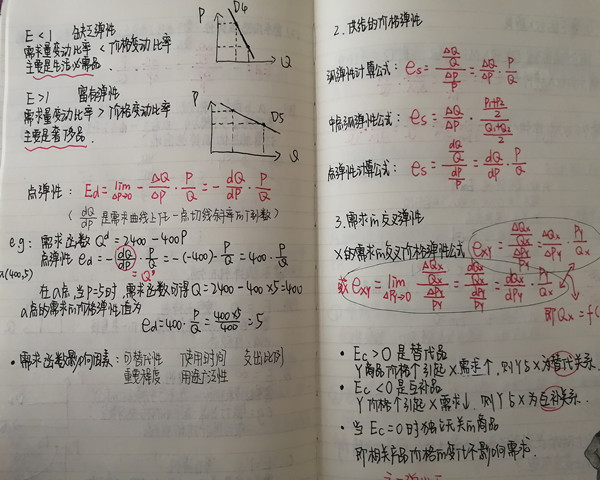 E < 1 缺乏弹性
需求量变动比率 < 价格变动比率
主要是生活必需品.
P
D4
Q
E>1 富有弹性
需求量变动比率 > 价格变动比率
主要是奢侈品.
P
D5
Q
点弹性: Ed = lim ΔP→0 - ΔQ/ΔP · P/Q = - dQ/dP · P/Q
( dQ/dP 是需求曲线上任一点切线斜率的倒数)
eg: 需求函数 Q^d = 2400 - 400P
点弹性 ed = - dQ/dP · P/Q = -(-400) · P/Q = 400 · P/Q
a(400,5)
= Q'
在a点,当P=5时,需求函数可得 Q = 2400 - 400×5 = 400
a点的需求的价格弹性值为
ed = 400 · P/Q = 400×5/400 = 5
• 需求函数影响因素: 可替代性 使用时间 支出比例
重要程度 用途广泛性
2. 供给的价格弹性
弧弹性计算公式: es = (ΔQ/Q)/(ΔP/P) = ΔQ/ΔP · P/Q
中点弧弹性公式: es = ΔQ/ΔP · ((P1+P2)/2)/((Q1+Q2)/2)
点弹性计算公式: es = (dQ/Q)/(dP/P) = dQ/dP · P/Q
3. 需求的交叉弹性
X的需求的交叉价格弹性公式 eXY = (ΔQX/QX)/(ΔPY/PY) = ΔQX/ΔPY · PY/QX
或 eXY = lim ΔPY→0 (ΔQX/QX)/(ΔPY/PY) = (dQX/QX)/(dPY/PY) = dQX/dPY · PY/QX
即 QX = f(
• Ec > 0 是替代品
Y商品价格↑引起X需求↑, 则Y与X为替代关系.
• Ec < 0 是互补品
Y价格↑引起X需求↓, 则Y与X为互补关系.
• 当 Ec = 0 时独立无关的商品
即相关产品价格的变化不影响需求.